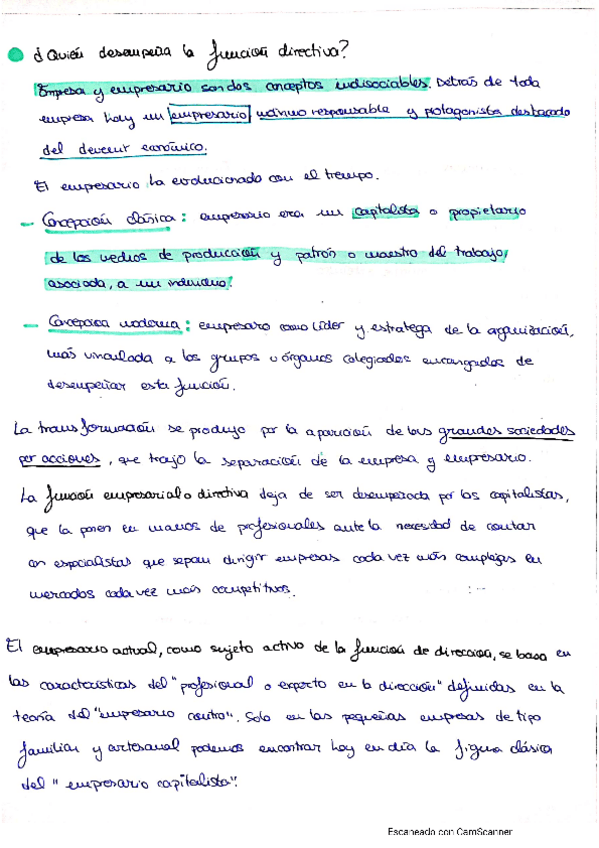 ¿Quién desempeña la función directiva?
Empresa y empresario son dos conceptos indisociables. Detrás de toda
empresa hay un empresario máximo responsable y protagonista destacado
del devenir económico.
El empresario ha evolucionado con el tiempo.
- Concepción clásica: empresario era un capitalista o propietario
de los medios de producción y patrón o maestro del trabajo,
asociada, a un individuo.
- Concepción moderna: empresario como líder y estratega de la organización,
más vinculada a los grupos u órganos colegiados encargados de
desempeñar esta función.
La transformación se produjo por la aparición de las grandes sociedades
por acciones, que trajo la separación de la empresa y empresario.
La función empresarial o directiva deja de ser desempeñada por los capitalistas,
que la ponen en manos de profesionales ante la necesidad de contar
con especialistas que sepan dirigir empresas cada vez más complejas en
mercados cada vez más competitivos.
El empresario actual, como sujeto activo de la función de dirección, se basa en
las características del "profesional o experto en la dirección" definidas en la
teoría del "empresario control". Solo en las pequeñas empresas de tipo
familiar y artesanal podemos encontrar hoy en día la figura clásica
del "empresario capitalista".
Escaneado con CamScanner